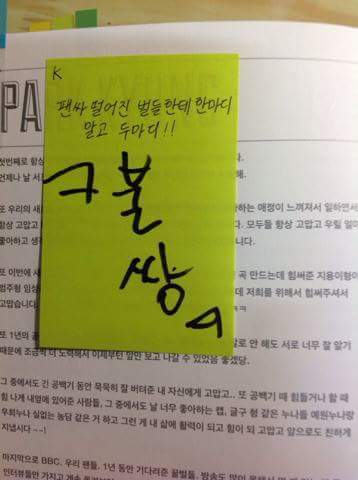 K
팬싸 떨어진 벌들한테 한마디
말고 두마디!!
ㅋ불
쌍
ㅋ
PA
첫번째로 항상
언제나 날
또 우리의 새 애정이 느껴져서 일하면서
항상 고맙고 모두들 항상 고맙고 우릴 얼마
좋아하고 니다.
또 이번에 새 곡 만드는데 힘써준 지용이형이
범주형 데 저희를 위해서 힘써주셔서
고맙습니다.
또 1년의 공 말로 안 해도 서로 너무 잘 알기
때문에 조금씩 더 노력해서 이제부턴 앞만 보고 나갈 수 있었음 좋겠당.
그 중에서도 긴 공백기 동안 묵묵히 잘 버텨준 내 자신에게 고맙고.. 또 공백기 때 힘들거나 할 때
힘 나게 내옆에 있어준 사람들, 그 중에서도 날 너무 좋아하는 캡, 글구 형 같은 누나들 예원누나랑
우희누나 실없는 농담 같은 거 하고 그런 게 내 삶에 활력이 되고 힘이 되 고맙고 앞으로도 친하게
지냅시다 ~~!
마지막으로 BBC. 우리 팬들. 1년 동안 기다려준 꿀벌들. 방송도 많이
인터뷰들만 가지고 계속